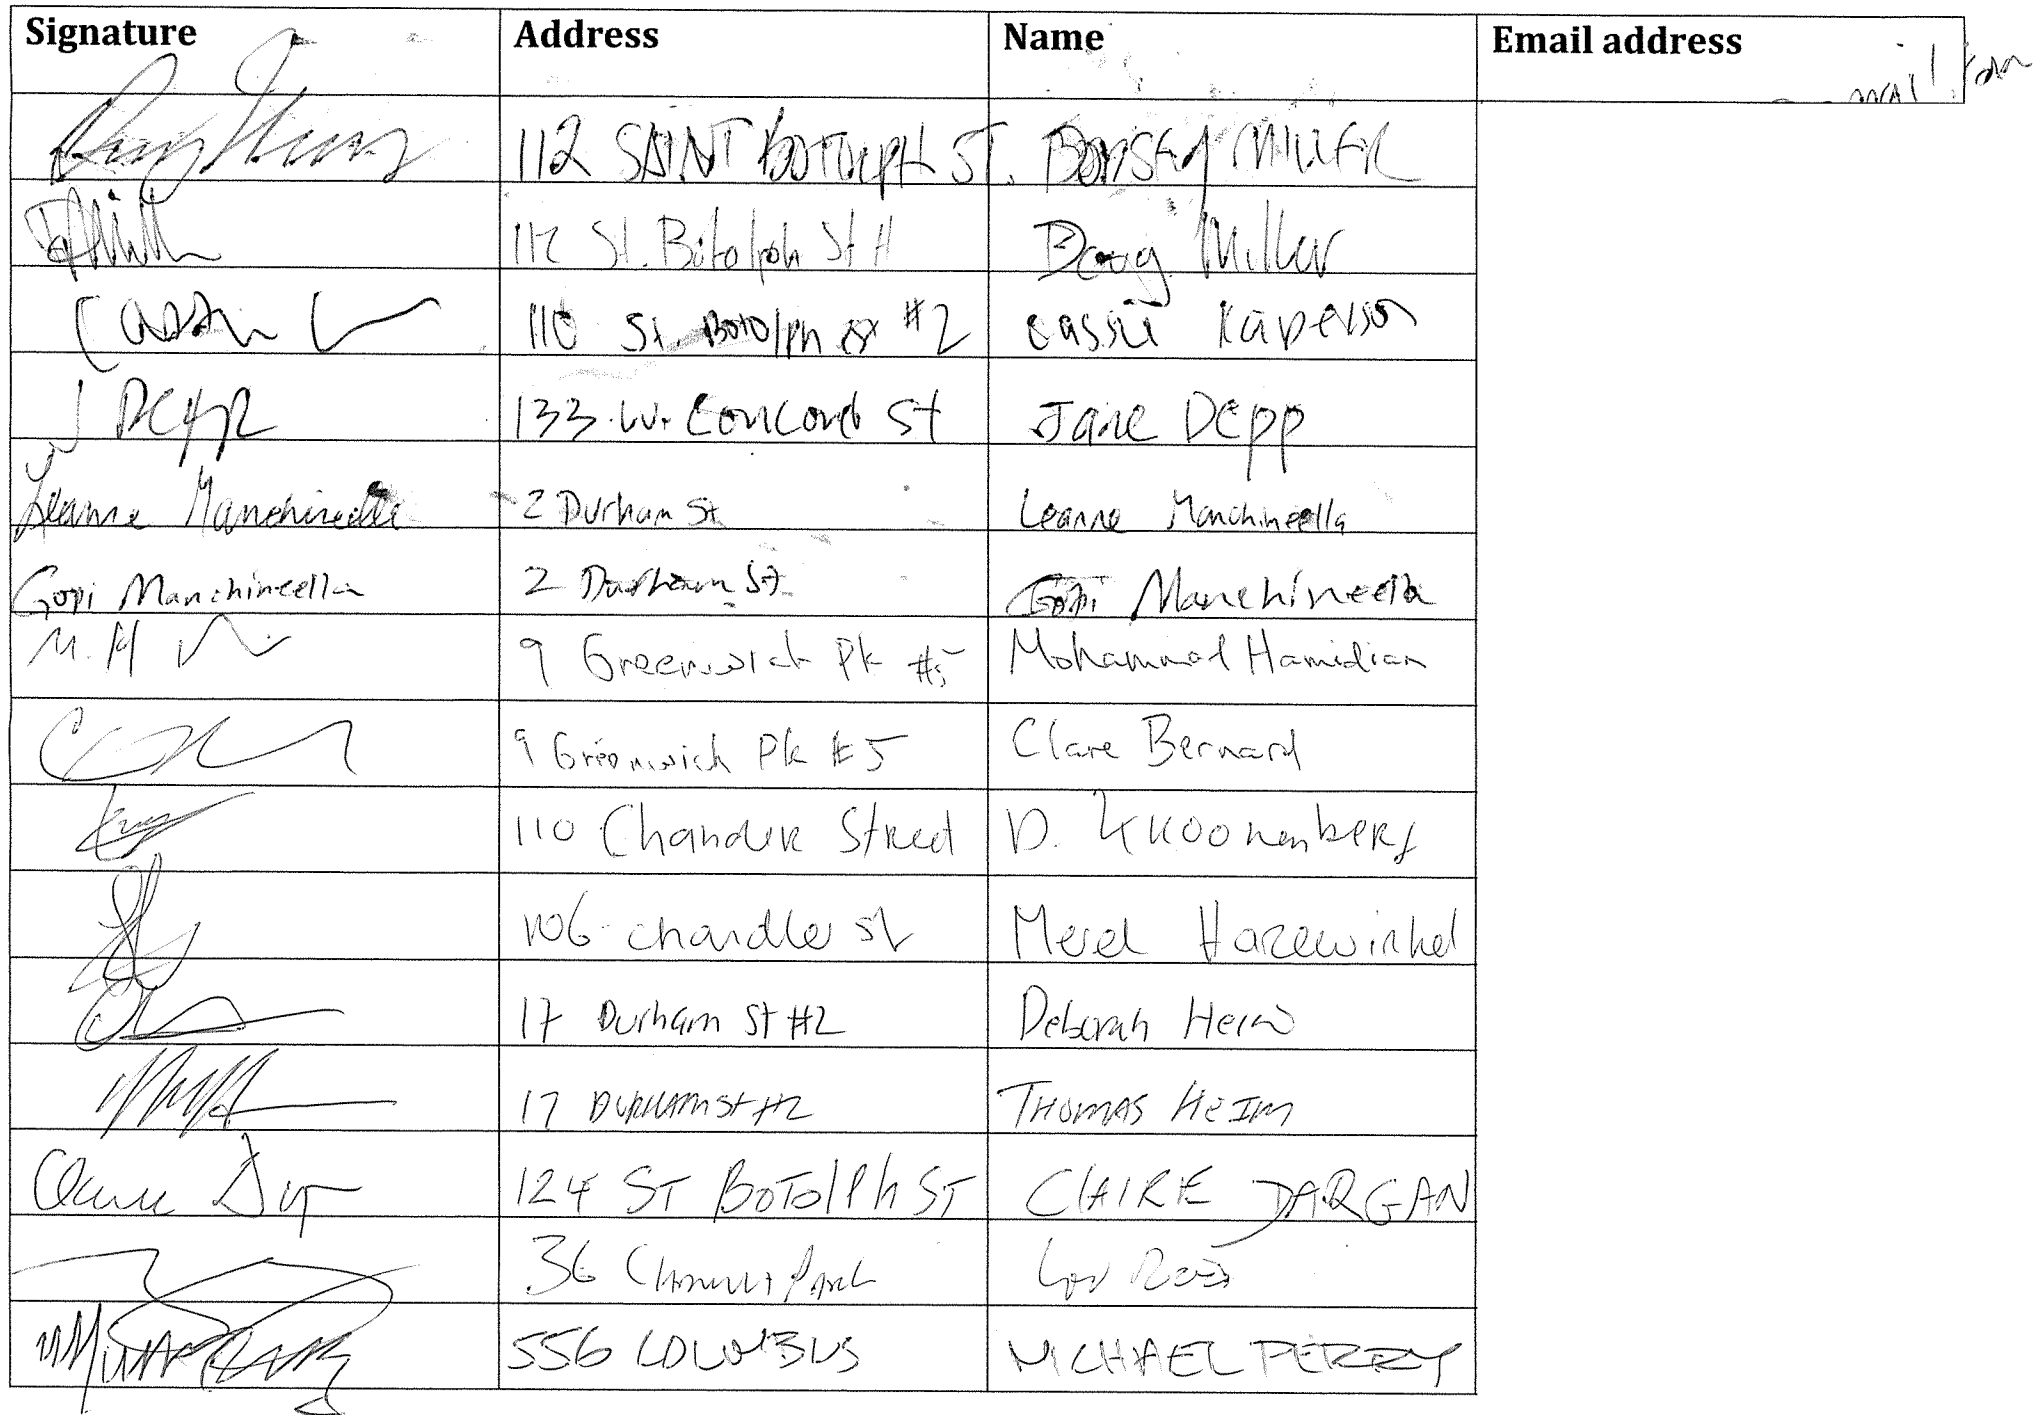 Signature Address Name Email address
112 SAINT BOTOLPH ST. MILLER
112 St. Botolph St Doug Miller
110 St. Botolph St #2 Cassie Kaperson
J Depp 133 W. Concord St Jane Depp
Leanne Manchineella 2 Durham St Leanne Manchineella
Gopi Manchineella 2 Durham St Gopi Manchineella
M. H 9 Greenwich Pk #5 Mohammad Hamidian
9 Greenwich Pk #5 Clare Bernard
110 Chandler Street D. Kroonenberg
106 chandler st Merel Harewinkel
17 Durham St #2 Deborah Heim
17 DURHAM St #2 THOMAS HEIM
124 ST BOTOlPh ST CLAIRE DARGAN
36
556 COLUMBUS MICHAEL PERRY